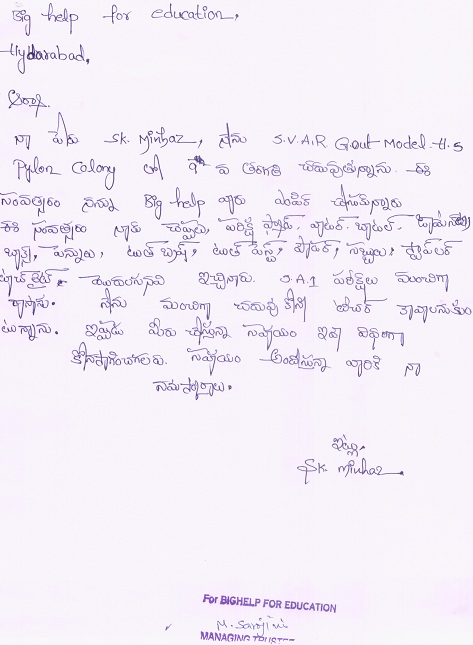 Big help for education,
Hyderabad,
నా పేరు SK. Minhaz, నేను S.V.A.R Gout Model H.S
Pylon Colony లో 9th వ తరగతి చదువుతున్నాను. ఈ
సంవత్సరం నన్ను Big help వారు ఎంపిక చేసుకున్నారు
ఈ సంవత్సరం నాకు చెప్పులు, పరీక్ష ప్యాడ్, వాటర్ బాటిల్,
బాక్స్, పెన్నులు, టూత్ బ్రష్, టూత్ పేస్ట్, పౌడర్, సబ్బులు,
మొదలగునవి ఇచ్చినారు. S.A.1 పరీక్షలు మంచిగా
వ్రాసాను. నేను మంచిగా చదువు కొని టీచర్ కావాలనుకుం
టున్నాను. ఇప్పుడు మీరు చేస్తున్న సహాయం ఇదే విధంగా
కొనసాగించగలరు. సహాయం అందిస్తున్న వారికి నా
నమస్కారాలు.
ఇట్లు,
SK Minhaz.
For BIGHELP FOR EDUCATION
M. Sarojini
MANAGING TRUSTEE